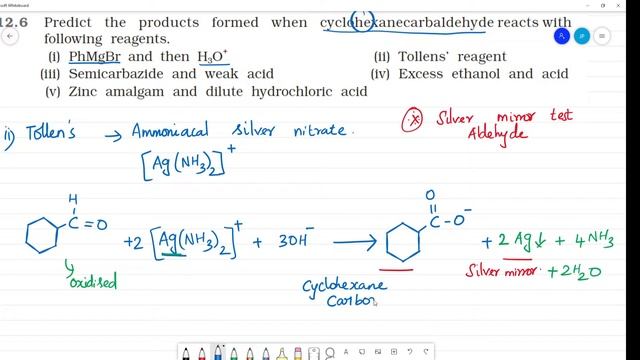 12.6 Predict the products formed when cyclohexanecarbaldehyde reacts with
following reagents.
(i) PhMgBr and then H₃O⁺ (ii) Tollens' reagent
(iii) Semicarbazide and weak acid (iv) Excess ethanol and acid
(v) Zinc amalgam and dilute hydrochloric acid
ii) Tollen's → Ammoniacal silver nitrate.
[Ag(NH₃)₂]⁺
* Silver mirror test
Aldehyde
H
C=O
+ 2 [Ag(NH₃)₂]⁺ + 3OH⁻ →
O
C-O⁻
+ 2 Ag↓ + 4NH₃
oxidised
Silver mirror. + 2H₂O
Cyclohexane
Carbox